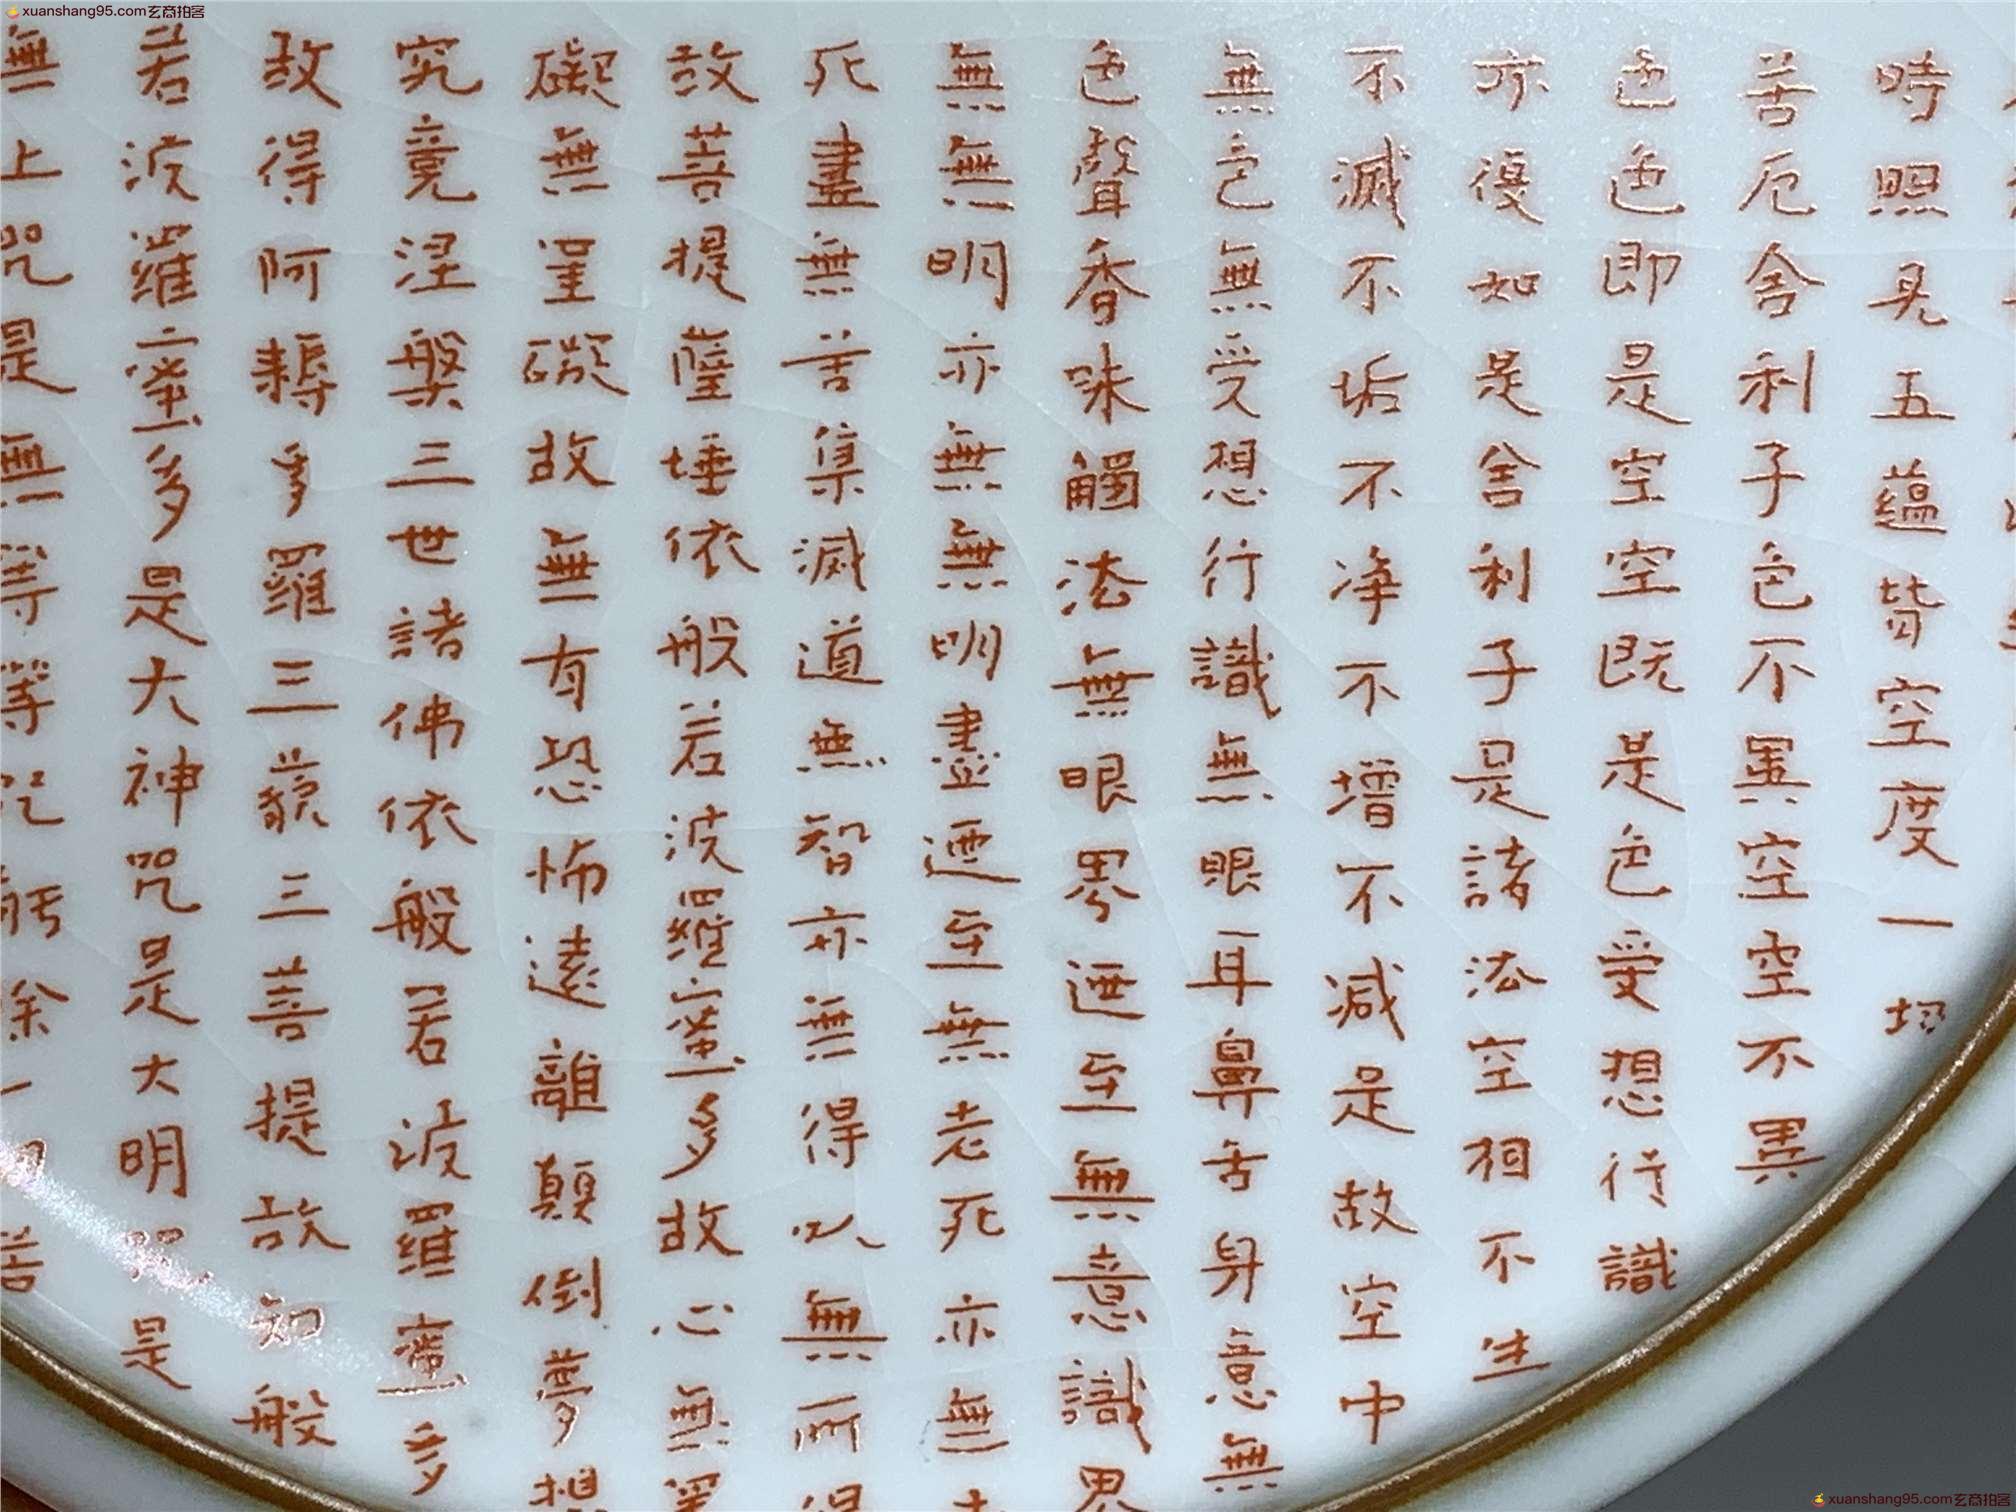 xuanshang95.com玄商拍客
時照見五蘊皆空度一切
苦厄舍利子色不異空空不異
色色即是空空既是色受想行識
亦復如是舍利子是諸法空相不生
不滅不垢不净不增不減是故空中
無色無受想行識無眼耳鼻舌身意無
色聲香味觸法無眼界迺至無意識界
無無明亦無無明盡迺至無老死亦無
死盡無苦集滅道無智亦無得以無所得
故菩提薩埵依般若波羅蜜多故心無罣
礙無罣礙故無有恐怖遠離顛倒夢想
究竟涅槃三世諸佛依般若波羅蜜多
故得阿耨多羅三藐三菩提故知般
若波羅蜜多是大神咒是大明咒是
無上咒是無等等咒能除一切苦
xuanshang95.com玄商拍客